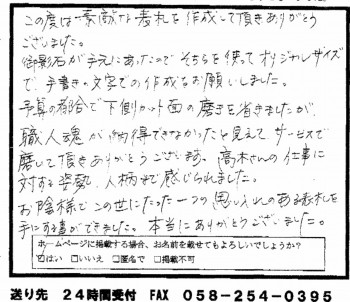 この度は素敵な表札を作成して頂きありがとう
ございました。
御影石が手元にあったのでそちらを使ってオリジナルサイズ
で、手書きの文字での作成をお願いしました。
予算の都合で下側カット面の磨きを省きましたが、
職人魂が納得できなかったと見えてサービスで
磨して頂きありがとうございます。高木さんの仕事に
対する姿勢、人柄まで感じられました。
お陰様でこの世にたった一つの思い入れのある表札を
手にする事ができました。本当にありがとうございました。
ホームページに掲載する場合、お名前を載せてもよろしいでしょうか?
☑はい □いいえ □匿名で □掲載不可
送り先 24時間受付 FAX 058-254-0395